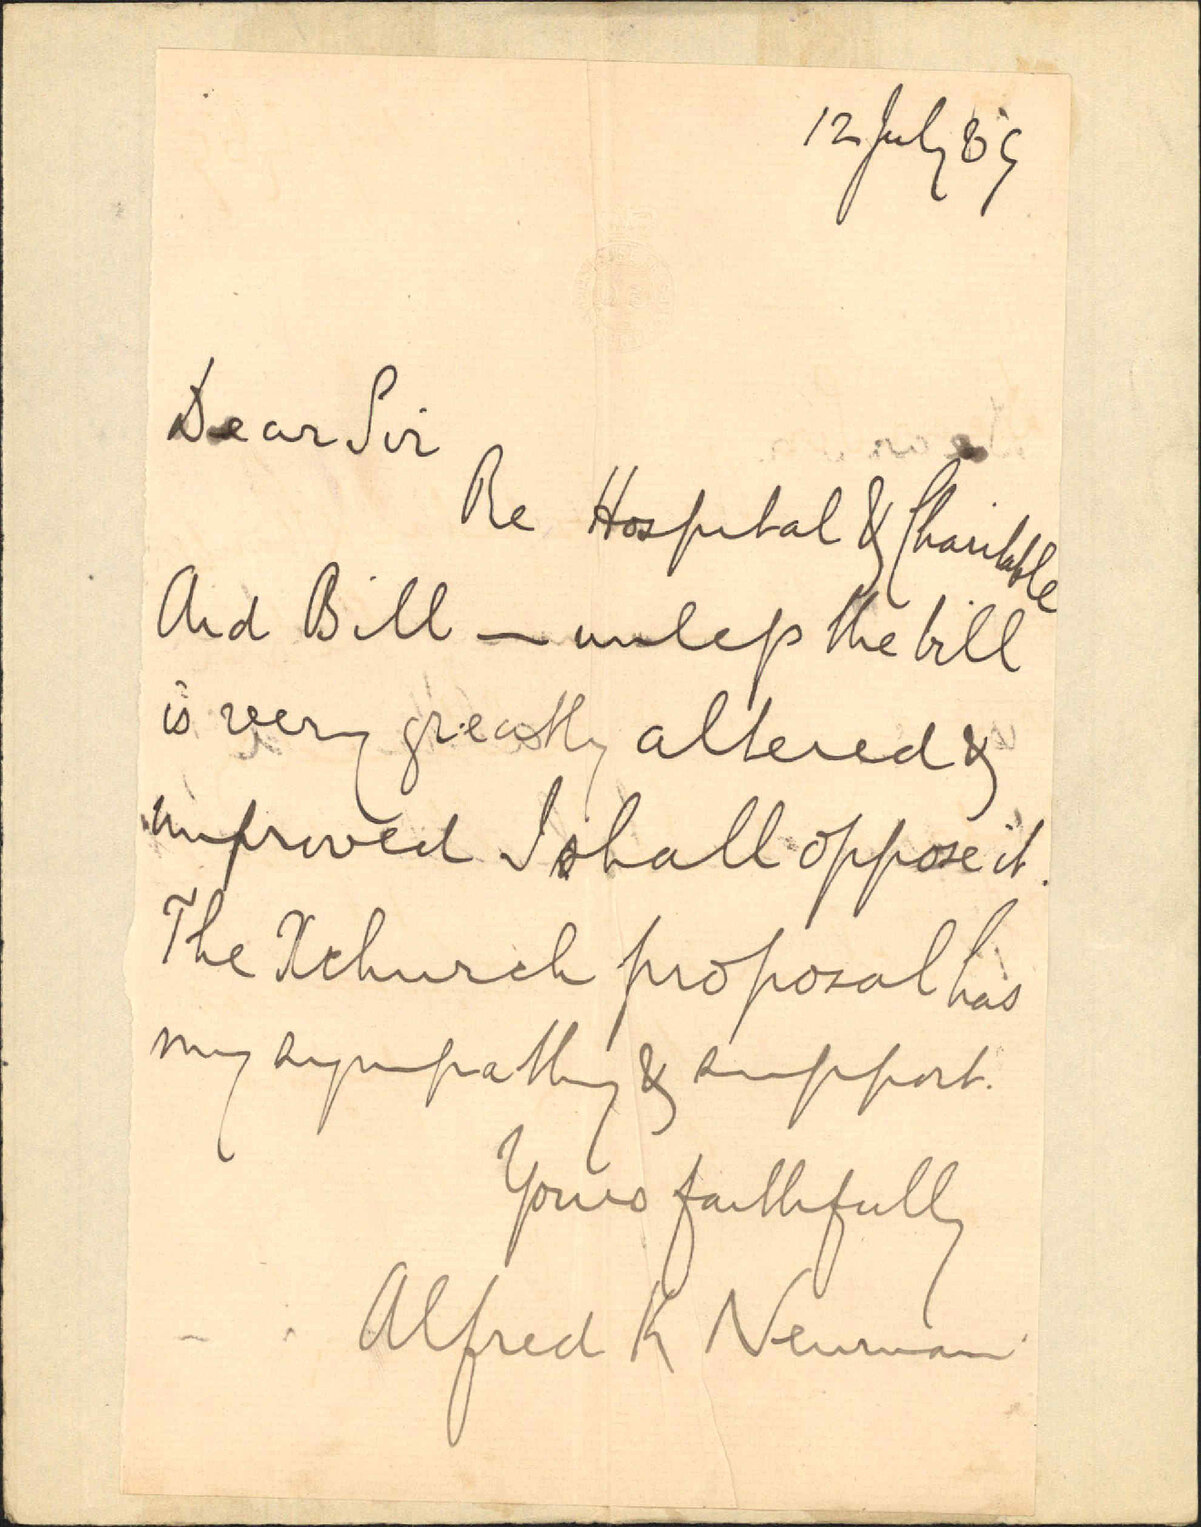 12 July 89
Dear Sir
Re Hospital & Charitable
Aid Bill — unless the bill
is very greatly altered &
improved I shall oppose it.
The Xchurch proposal has
my sympathy & support.
Yours faithfully
Alfred K Newman